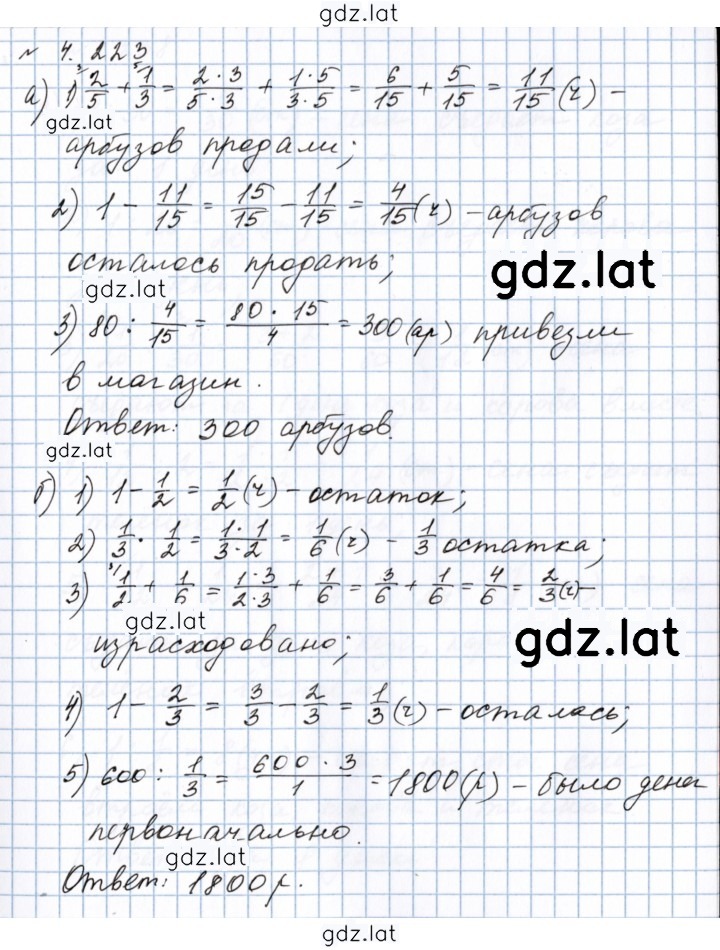 gdz.lat
№ 4.223
а) 1) 2/5 + 1/3 = 2·3/5·3 + 1·5/3·5 = 6/15 + 5/15 = 11/15 (ч) –
gdz.lat
арбузов продали;
2) 1 - 11/15 = 15/15 - 11/15 = 4/15 (ч) – арбузов
осталось продать;
gdz.lat
gdz.lat
3) 80 : 4/15 = 80·15/4 = 300 (ар) привезли
в магазин.
Ответ: 300 арбузов.
gdz.lat
б) 1) 1 - 1/2 = 1/2 (ч) – остаток;
2) 1/3 · 1/2 = 1·1/3·2 = 1/6 (ч) – 1/3 остатка;
3) 1/2 + 1/6 = 1·3/2·3 + 1/6 = 3/6 + 1/6 = 4/6 = 2/3 (ч) –
gdz.lat
gdz.lat
израсходовано;
4) 1 - 2/3 = 3/3 - 2/3 = 1/3 (ч) – осталась;
5) 600 : 1/3 = 600·3/1 = 1800 (р) – было денег
первоначально.
gdz.lat
Ответ: 1800 р.
gdz.lat